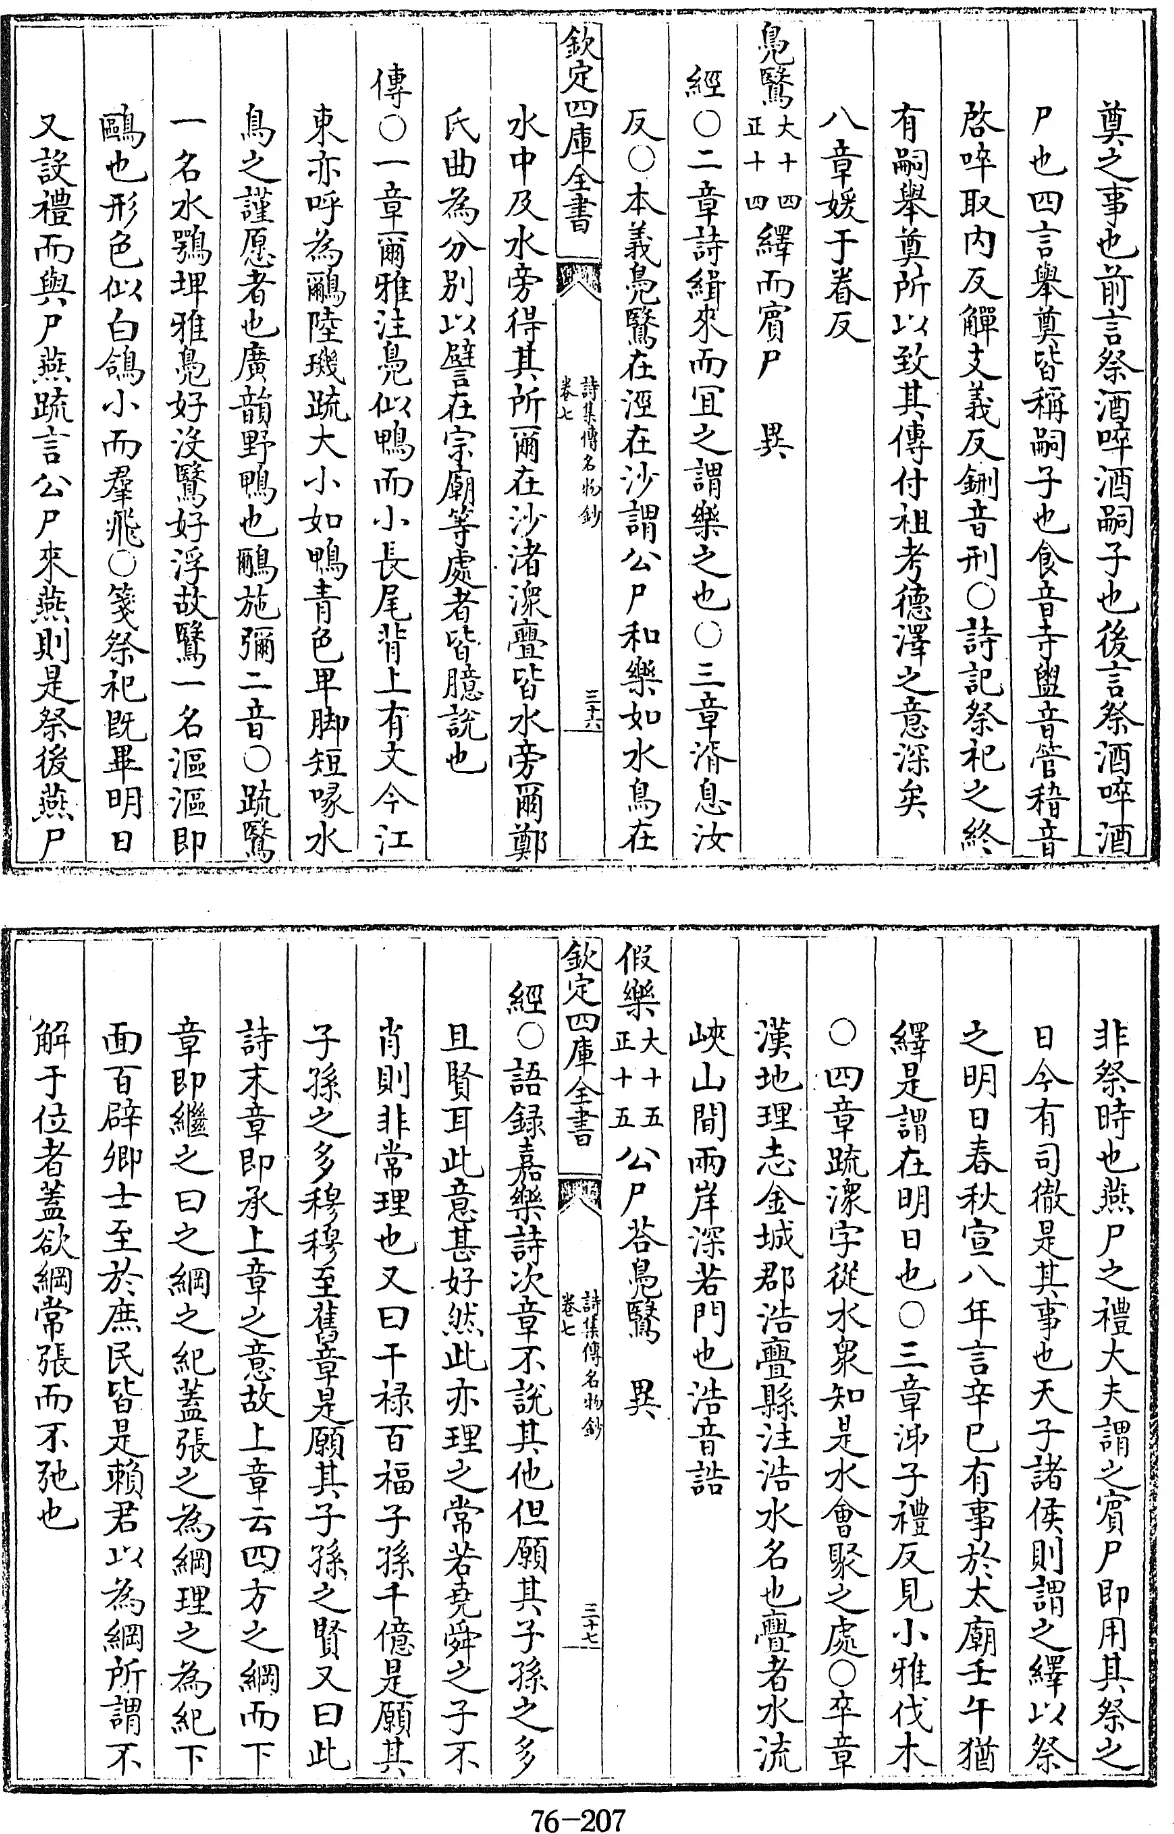 奠之事也前言祭酒啐酒嗣子也後言祭酒啐酒
尸也四言舉奠皆稱嗣子也食音寺盥音管稽音
啓啐取内反觶支義反鉶音刑○詩記祭祀之終
有嗣舉奠所以致其傳付祖考德澤之意深矣
八章媛于眷反
鳧鷖大十四正十四繹而賓尸　異
經○二章詩緝來而宜之謂樂之也○三章湑息汝
反○本義鳧鷖在涇在沙謂公尸和樂如水鳥在
欽定四庫全書　詩集傳名物鈔卷七　三十六
水中及水旁得其所爾在沙渚潀亹皆水旁爾鄭
氏曲為分别以譬在宗廟等處者皆臆說也
傳○一章爾雅注鳧似鴨而小長尾背上有文今江
東亦呼為鸍陸璣疏大小如鴨青色卑脚短喙水
鳥之謹愿者也廣韻野鴨也鸍施彌二音○疏鷖
一名水鴞埤雅鳧好沒鷖好浮故鷖一名漚漚即
鷗也形色似白鴿小而羣飛○箋祭祀既畢明日
又設禮而與尸燕疏言公尸來燕則是祭後燕尸
非祭時也燕尸之禮大夫謂之賓尸即用其祭之
日今有司徹是其事也天子諸侯則謂之繹以祭
之明日春秋宣八年言辛巳有事於太廟壬午猶
繹是謂在明日也○三章泲子禮反見小雅伐木
○四章疏潀字從水衆知是水會聚之處○卒章
漢地理志金城郡浩亹縣注浩水名也亹者水流
峽山間兩岸深若門也浩音誥
假樂大十五正十五公尸荅鳧鷖　異
欽定四庫全書　詩集傳名物鈔卷七　三十七
經○語録嘉樂詩次章不說其他但願其子孫之多
且賢耳此意甚好然此亦理之常若堯舜之子不
肖則非常理也又曰干禄百福子孫千億是願其
子孫之多穆穆至舊章是願其子孫之賢又曰此
詩末章即承上章之意故上章云四方之綱而下
章即繼之曰之綱之紀蓋張之為綱理之為紀下
面百辟卿士至於庶民皆是賴君以為綱所謂不
解于位者蓋欲綱常張而不弛也
76-207